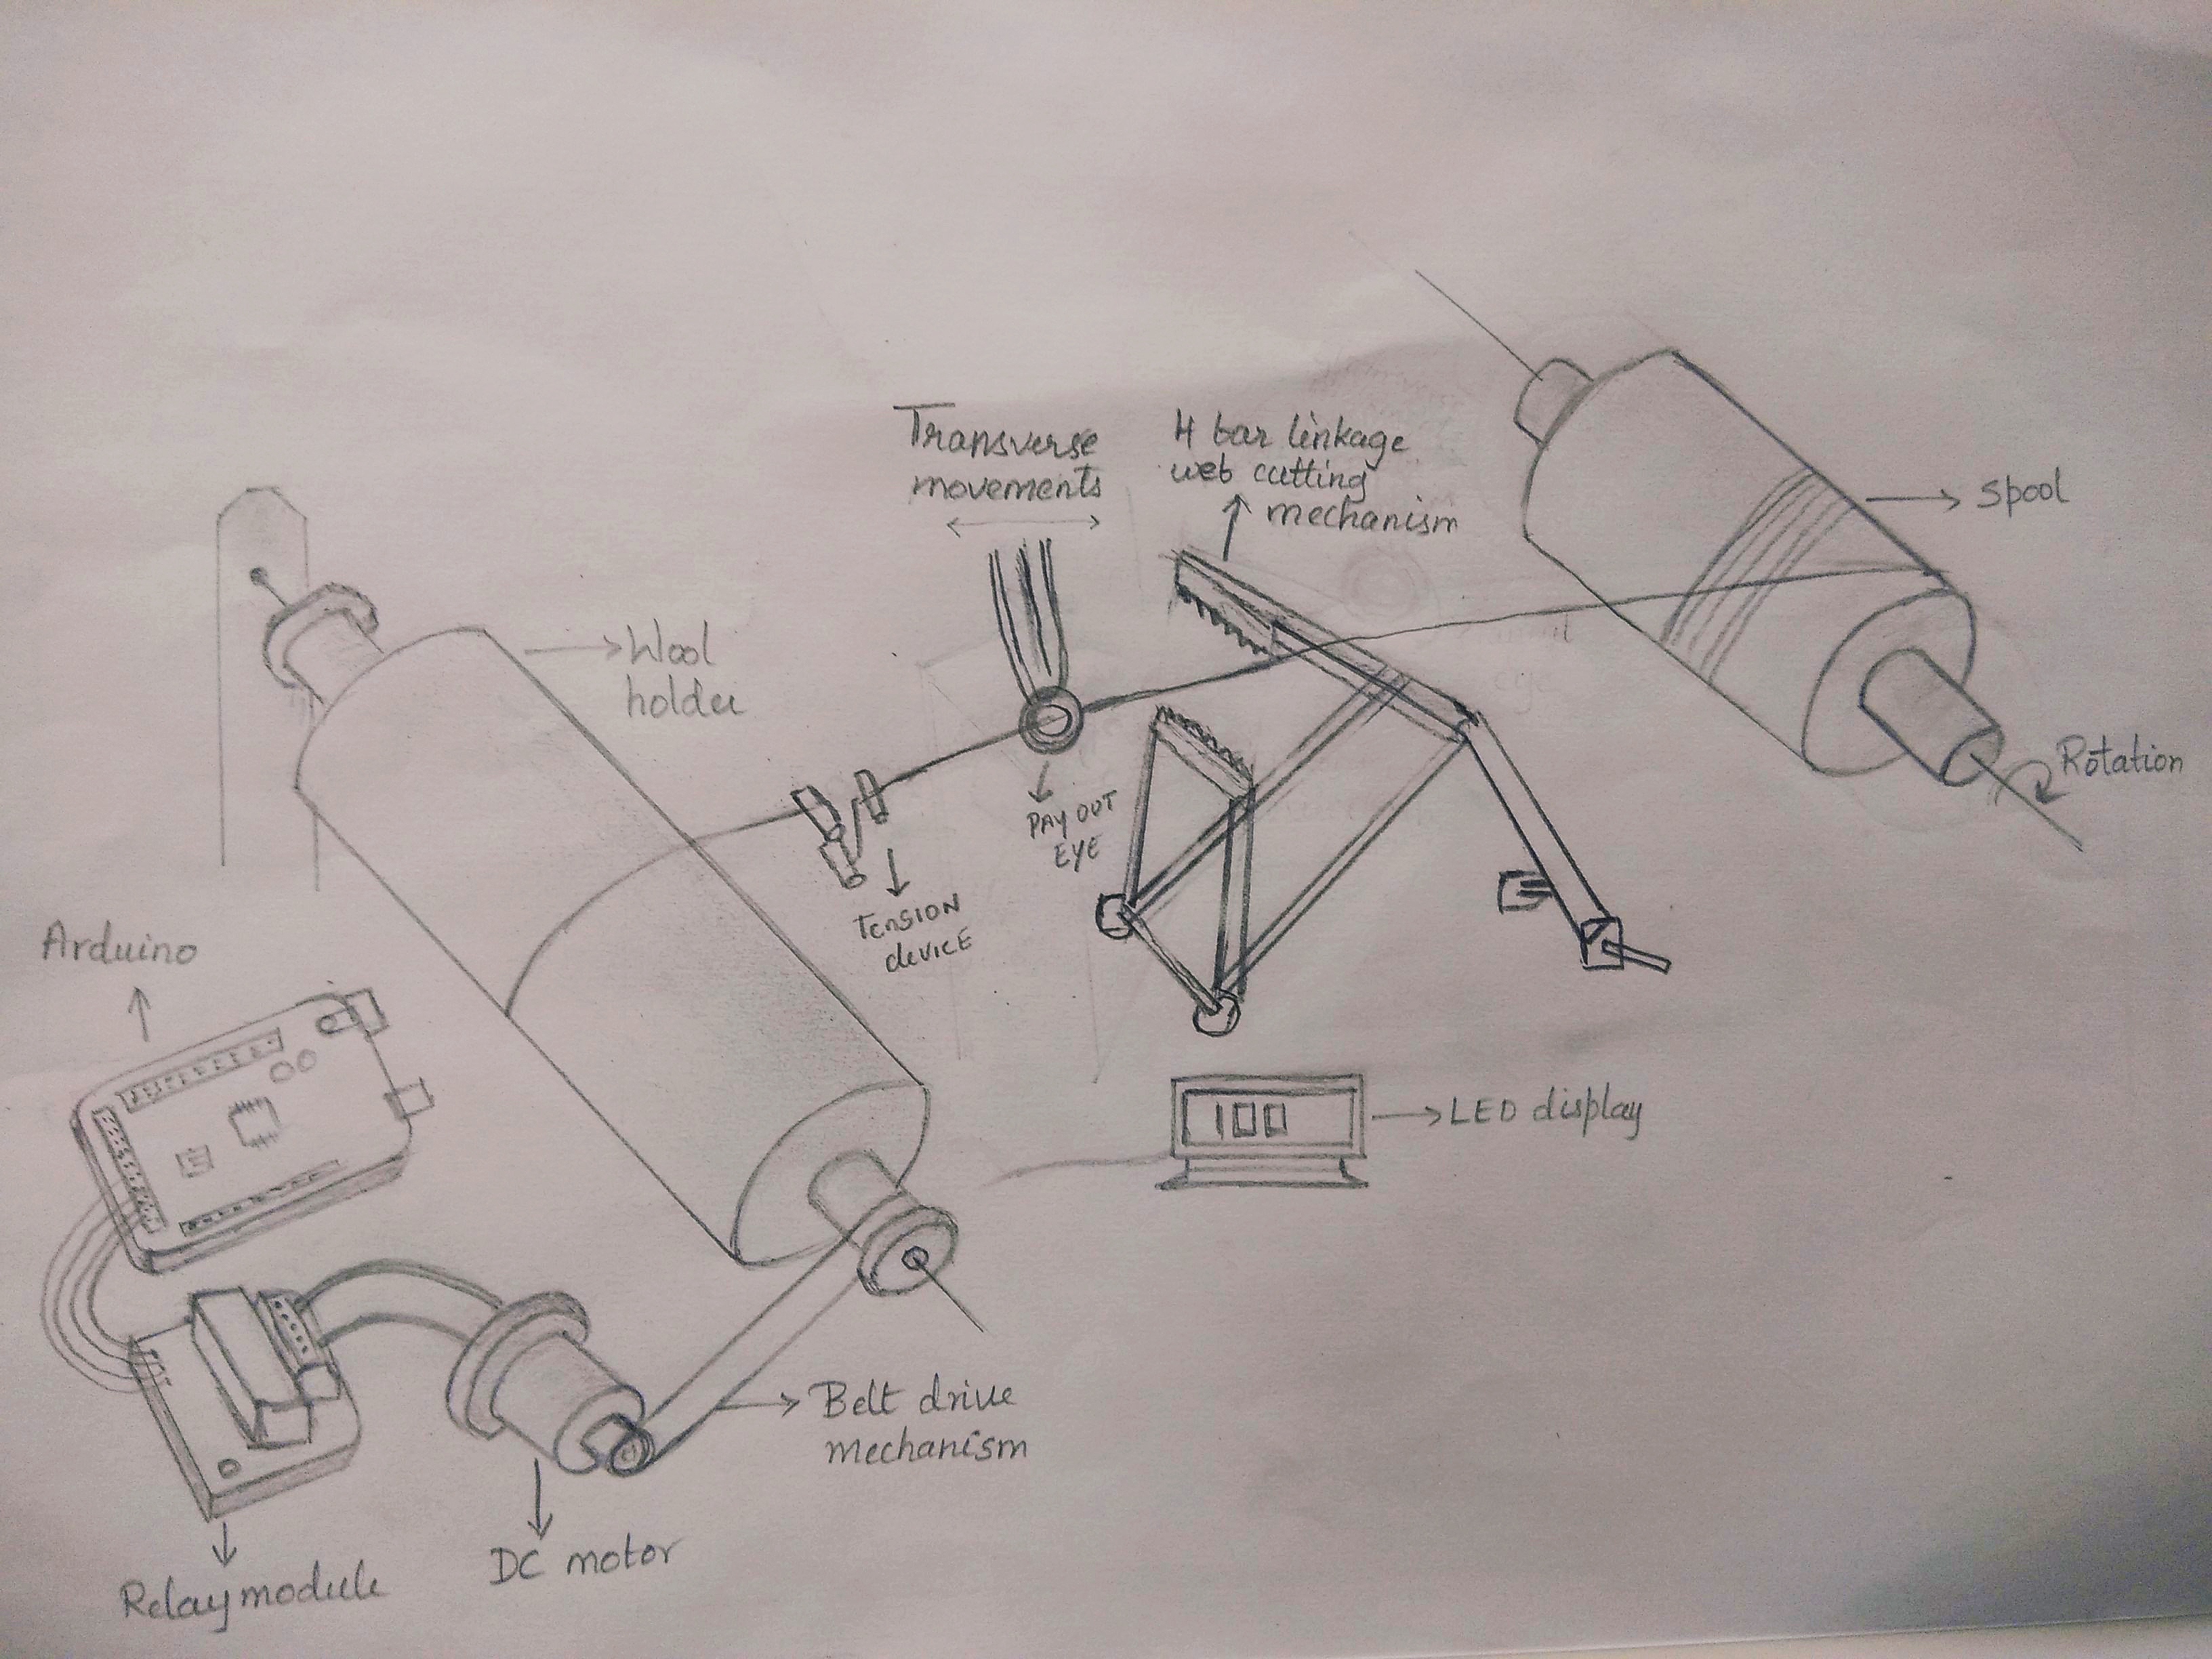 Transverse
movements
4 bar linkage
web cutting
mechanism
Spool
Wool
holder
Rotation
PAY OUT
EYE
TENSION
device
Arduino
100
LED display
Belt drive
mechanism
DC motor
Relay module